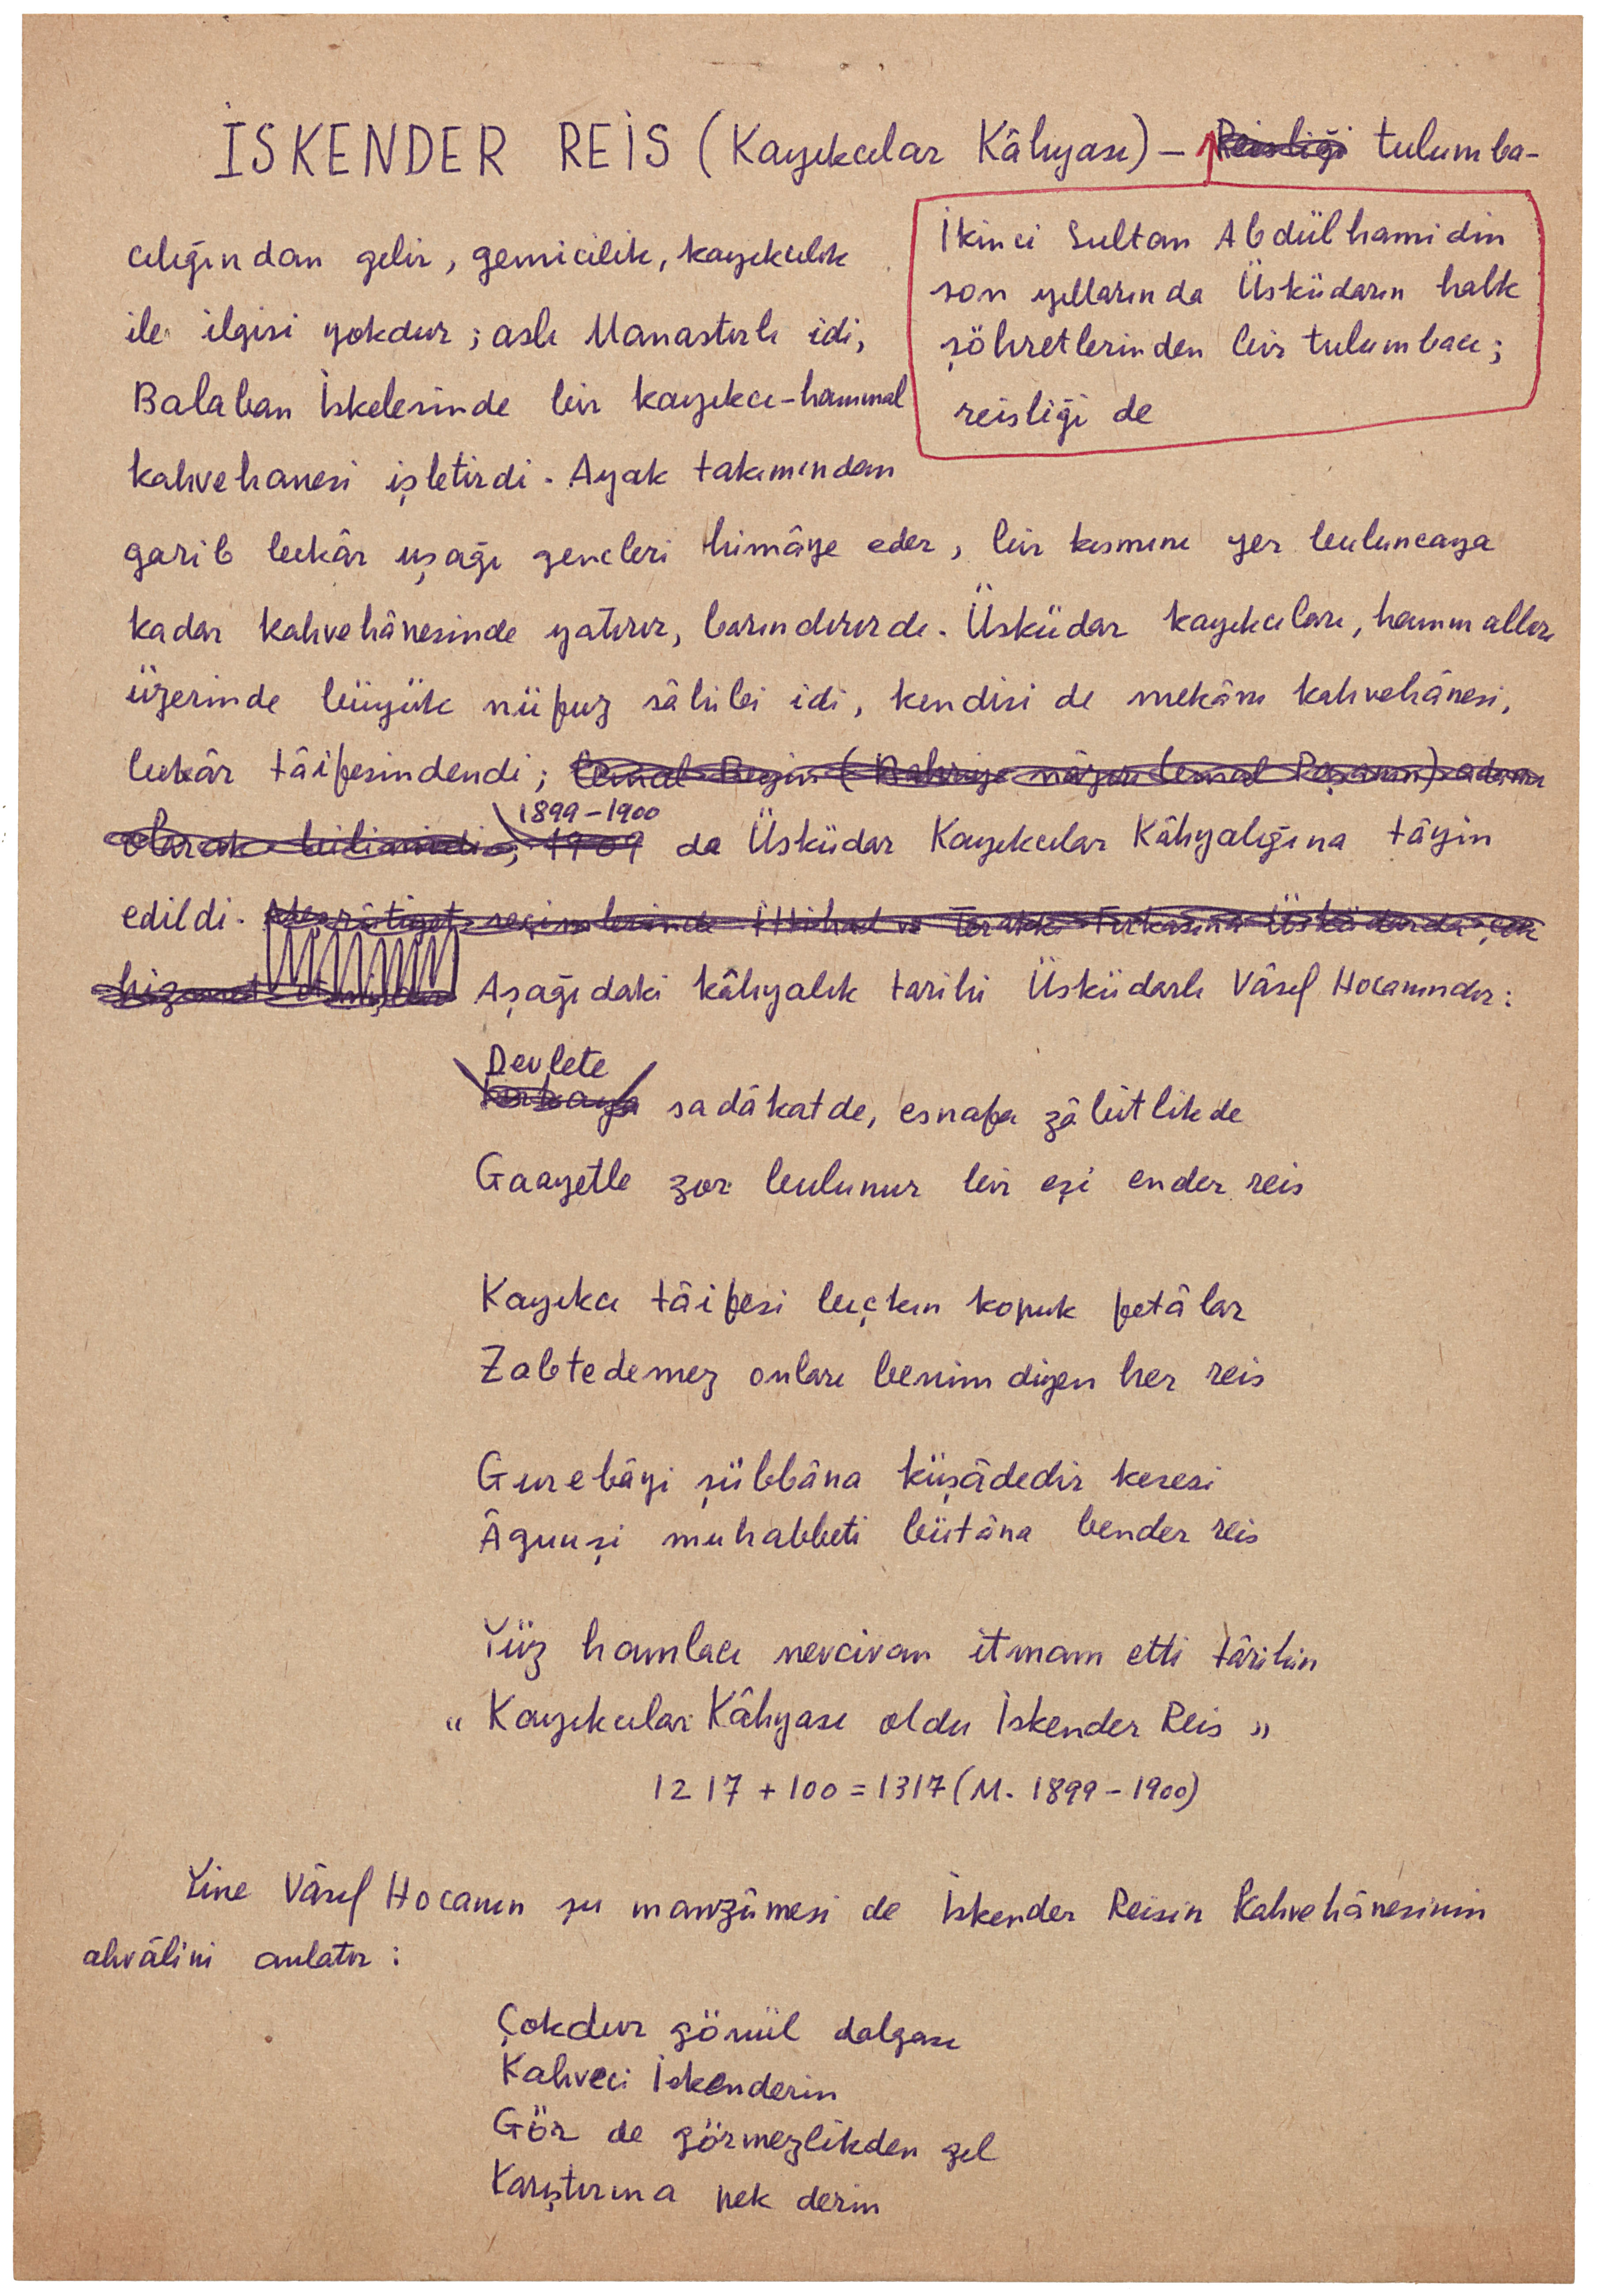 İSKENDER REİS (Kayıkcılar Kâhyası) — Reisliği tulumba-
İkinci Sultan Abdülhamidin
son yıllarında Üsküdarın halk
şöhretlerinden bir tulumbacı;
reisliği de
cılığından gelir, gemicilik, kayıkcılık
ile ilgisi yokdur; aslı Manastırlı idi,
Balaban İskelesinde bir kayıkcı-hammal
kahvehanesi işletirdi. Ayak takımından
garib bekâr uşağı gencleri himâye eder, bir kısmını yer buluncaya
kadar kahvehânesinde yatırır, barındırırdı. Üsküdar kayıkcıları, hammalları
üzerinde büyük nüfuz sâhibi idi, kendisi de mekânı kahvehânesi,
bekâr tâifesindendi; Cemal Beyin (Bahriye nâzırı Cemal Paşanın) adamı
1899-1900
olarak bilinirdi, 1909 da Üsküdar Kayıkcılar Kâhyalığına tâyin
edildi. Meşrûtiyet seçimlerinde İttihad ve Terakki Fırkasına Üsküdarda çok
hizmet etmişdir Aşağıdaki kâhyalık tarihi Üsküdarlı Vâsıf Hocanındır:
Devlete
Fırkaya sadâkatde, esnafa zâbitlikde
Gaayetle zor bulunur bir eşi ender reis
Kayıkcı tâifesi bıçkın kopuk fetâlar
Zabtedemez onları benim diyen her reis
Gurebâyi şübbâna küşâdedir kesesi
Âguuşi muhabbeti bütâna bender reis
Yüz hamlacı nevcivan itmam etti târihin
"Kayıkcılar Kâhyası oldu İskender Reis"
1217 + 100 = 1317 (M. 1899-1900)
Yine Vâsıf Hocanın şu manzûmesi de İskender Reisin Kahvehânesinin
ahvâlini anlatır:
Çokdur gönül dalgası
Kahveci İskenderin
Gör de görmezlikden gel
Karıştırma pek derin